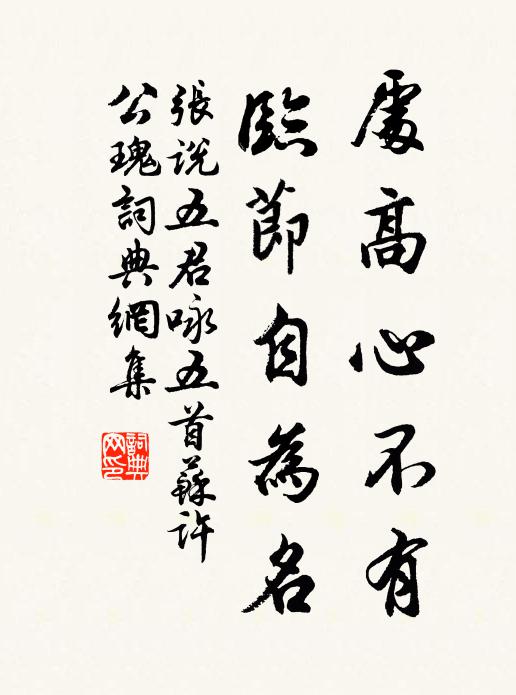 處高心不有
臨節自為名
張說五君咏五首蘇許
公瓌詞典網集
詞典網印